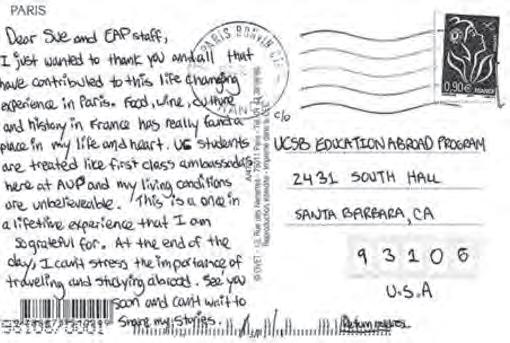 PARIS
Dear Sue and EAP staff,
I just wanted to thank you and all that
have contributed to this life changing
experience in Paris. Food, wine, culture
and history in France has really found a
place in my life and heart. UC students
are treated like first class ambassadors
here at AUP and my living conditions
are unbelieveable. This is a once in
a lifetime experience that I am
so grateful for. At the end of the
day, I can't stress the importance of
traveling and studying abroad. See you
soon and can't wait to
share my stories.
PARIS BONVIN
0.90€
FRANCE
c/o
UCSB EDUCATION ABROAD PROGRAM
2431 SOUTH HALL
SANTA BARBARA, CA
93106
U.S.A
Return address